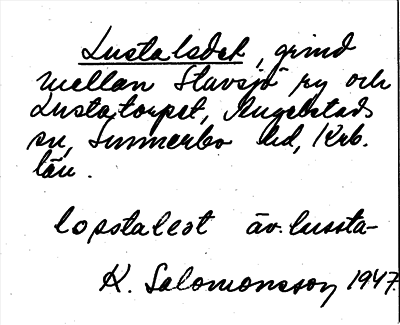 Lustalsdet, grind
mellan Slavsjö ry och
Lustatorpet, Angelstads
sn, Sunnerbo hd, Krb.
län.
lopstalest äv. lussta-
K. Salomonsson 1947.